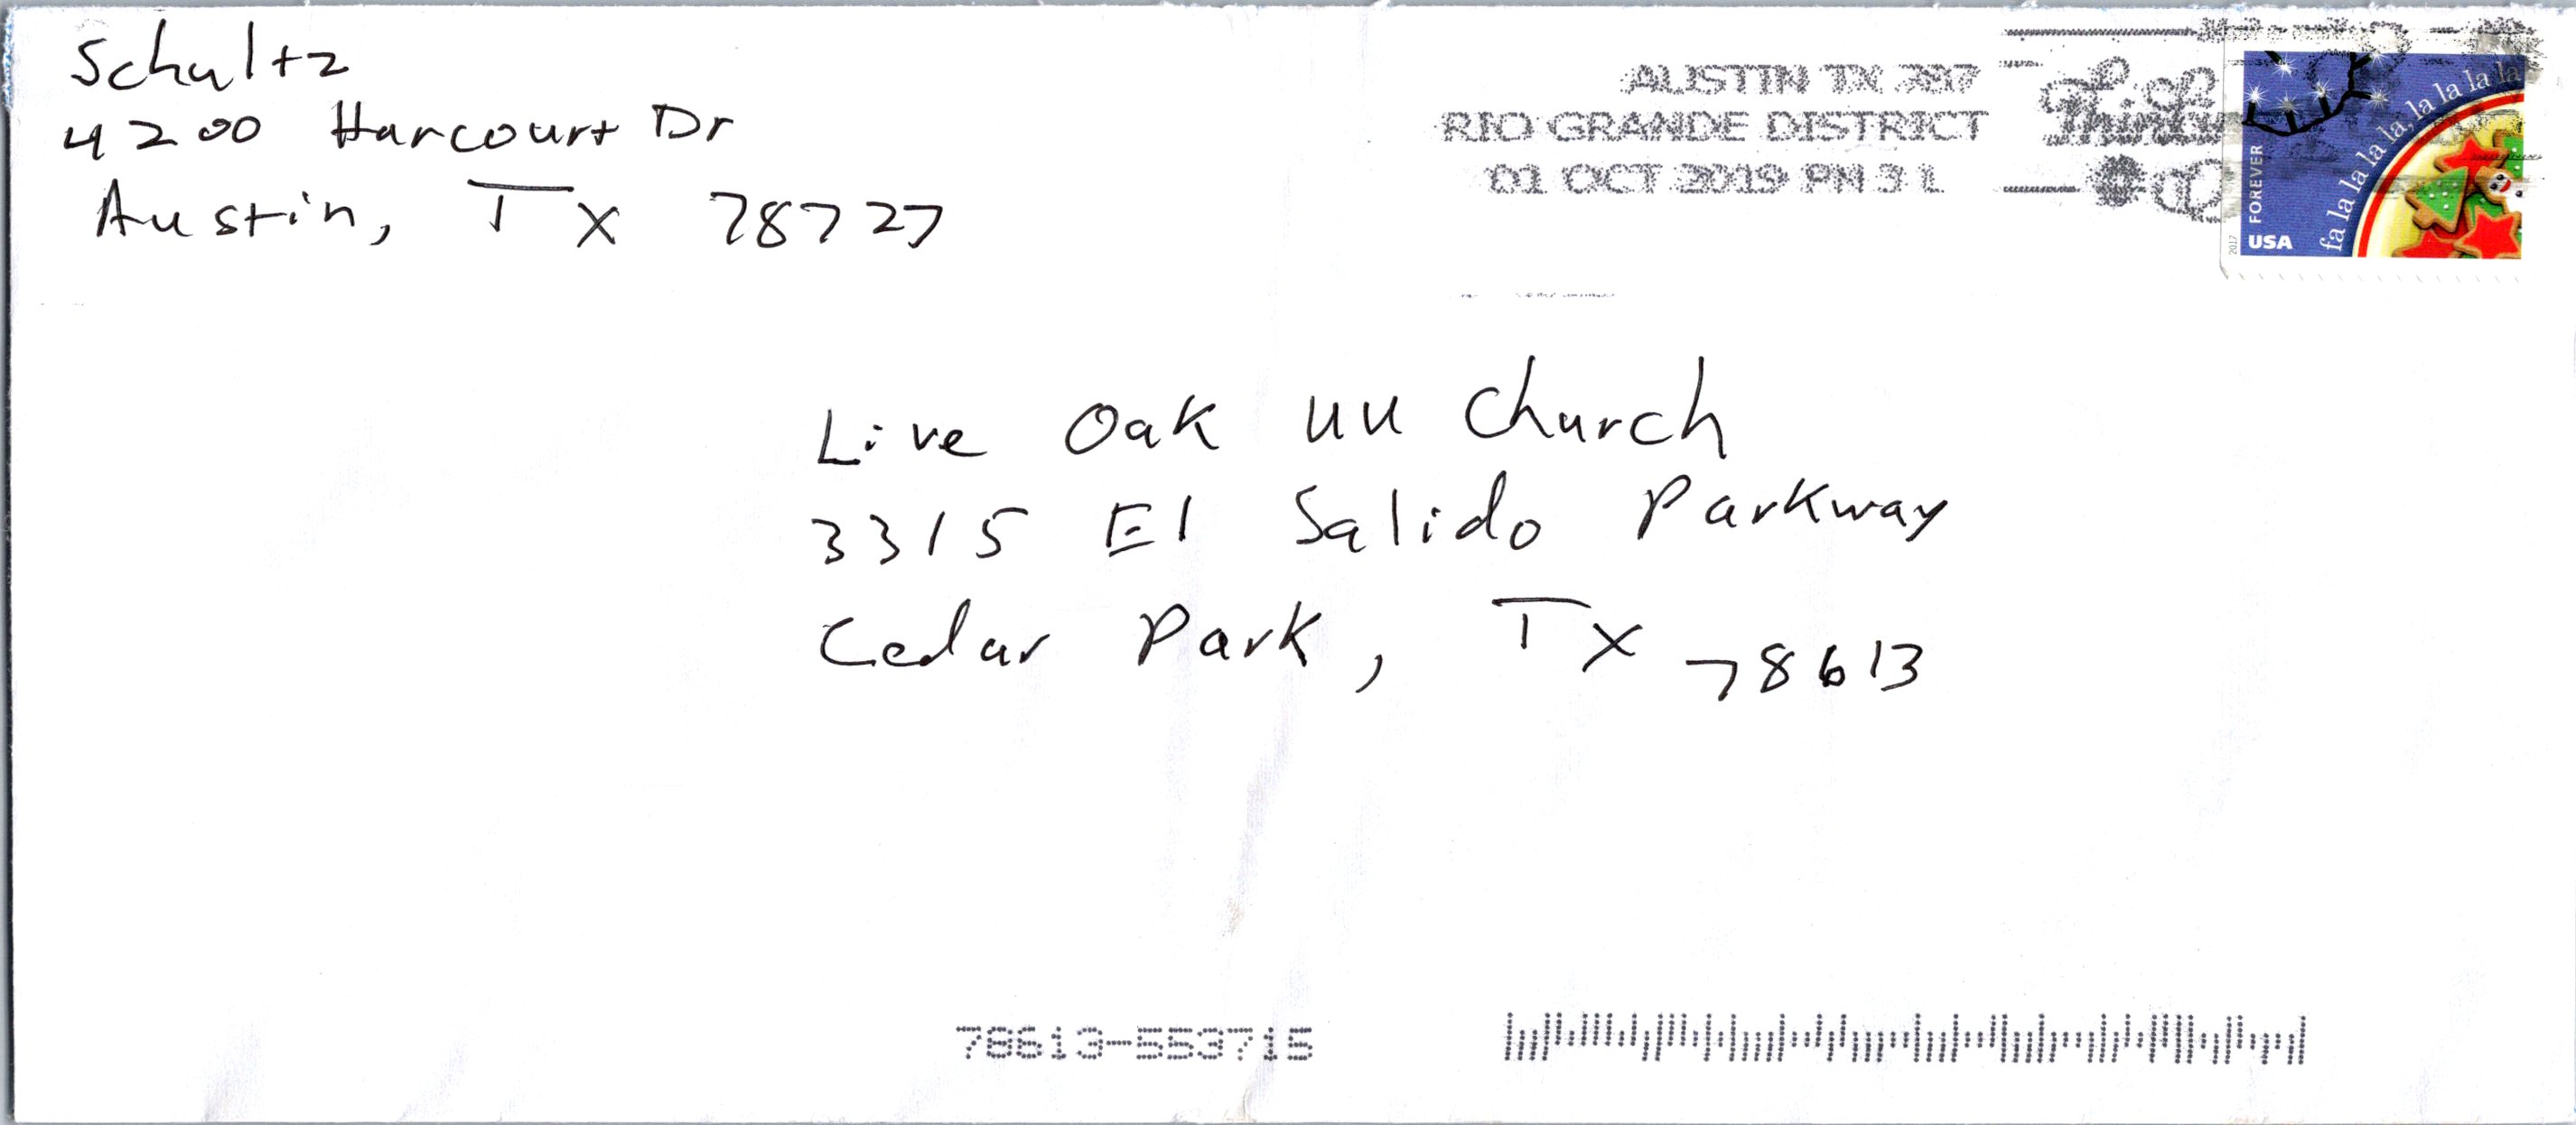 Schultz
4200 Harcourt Dr
Austin, TX 78727
AUSTIN TX 787
RIO GRANDE DISTRICT
01 OCT 2019 PM 3 L
fa la la la la, la la la la
FOREVER
USA
2017
Live Oak UU Church
3315 El Salido Parkway
Cedar Park, TX 78613
78613-553715